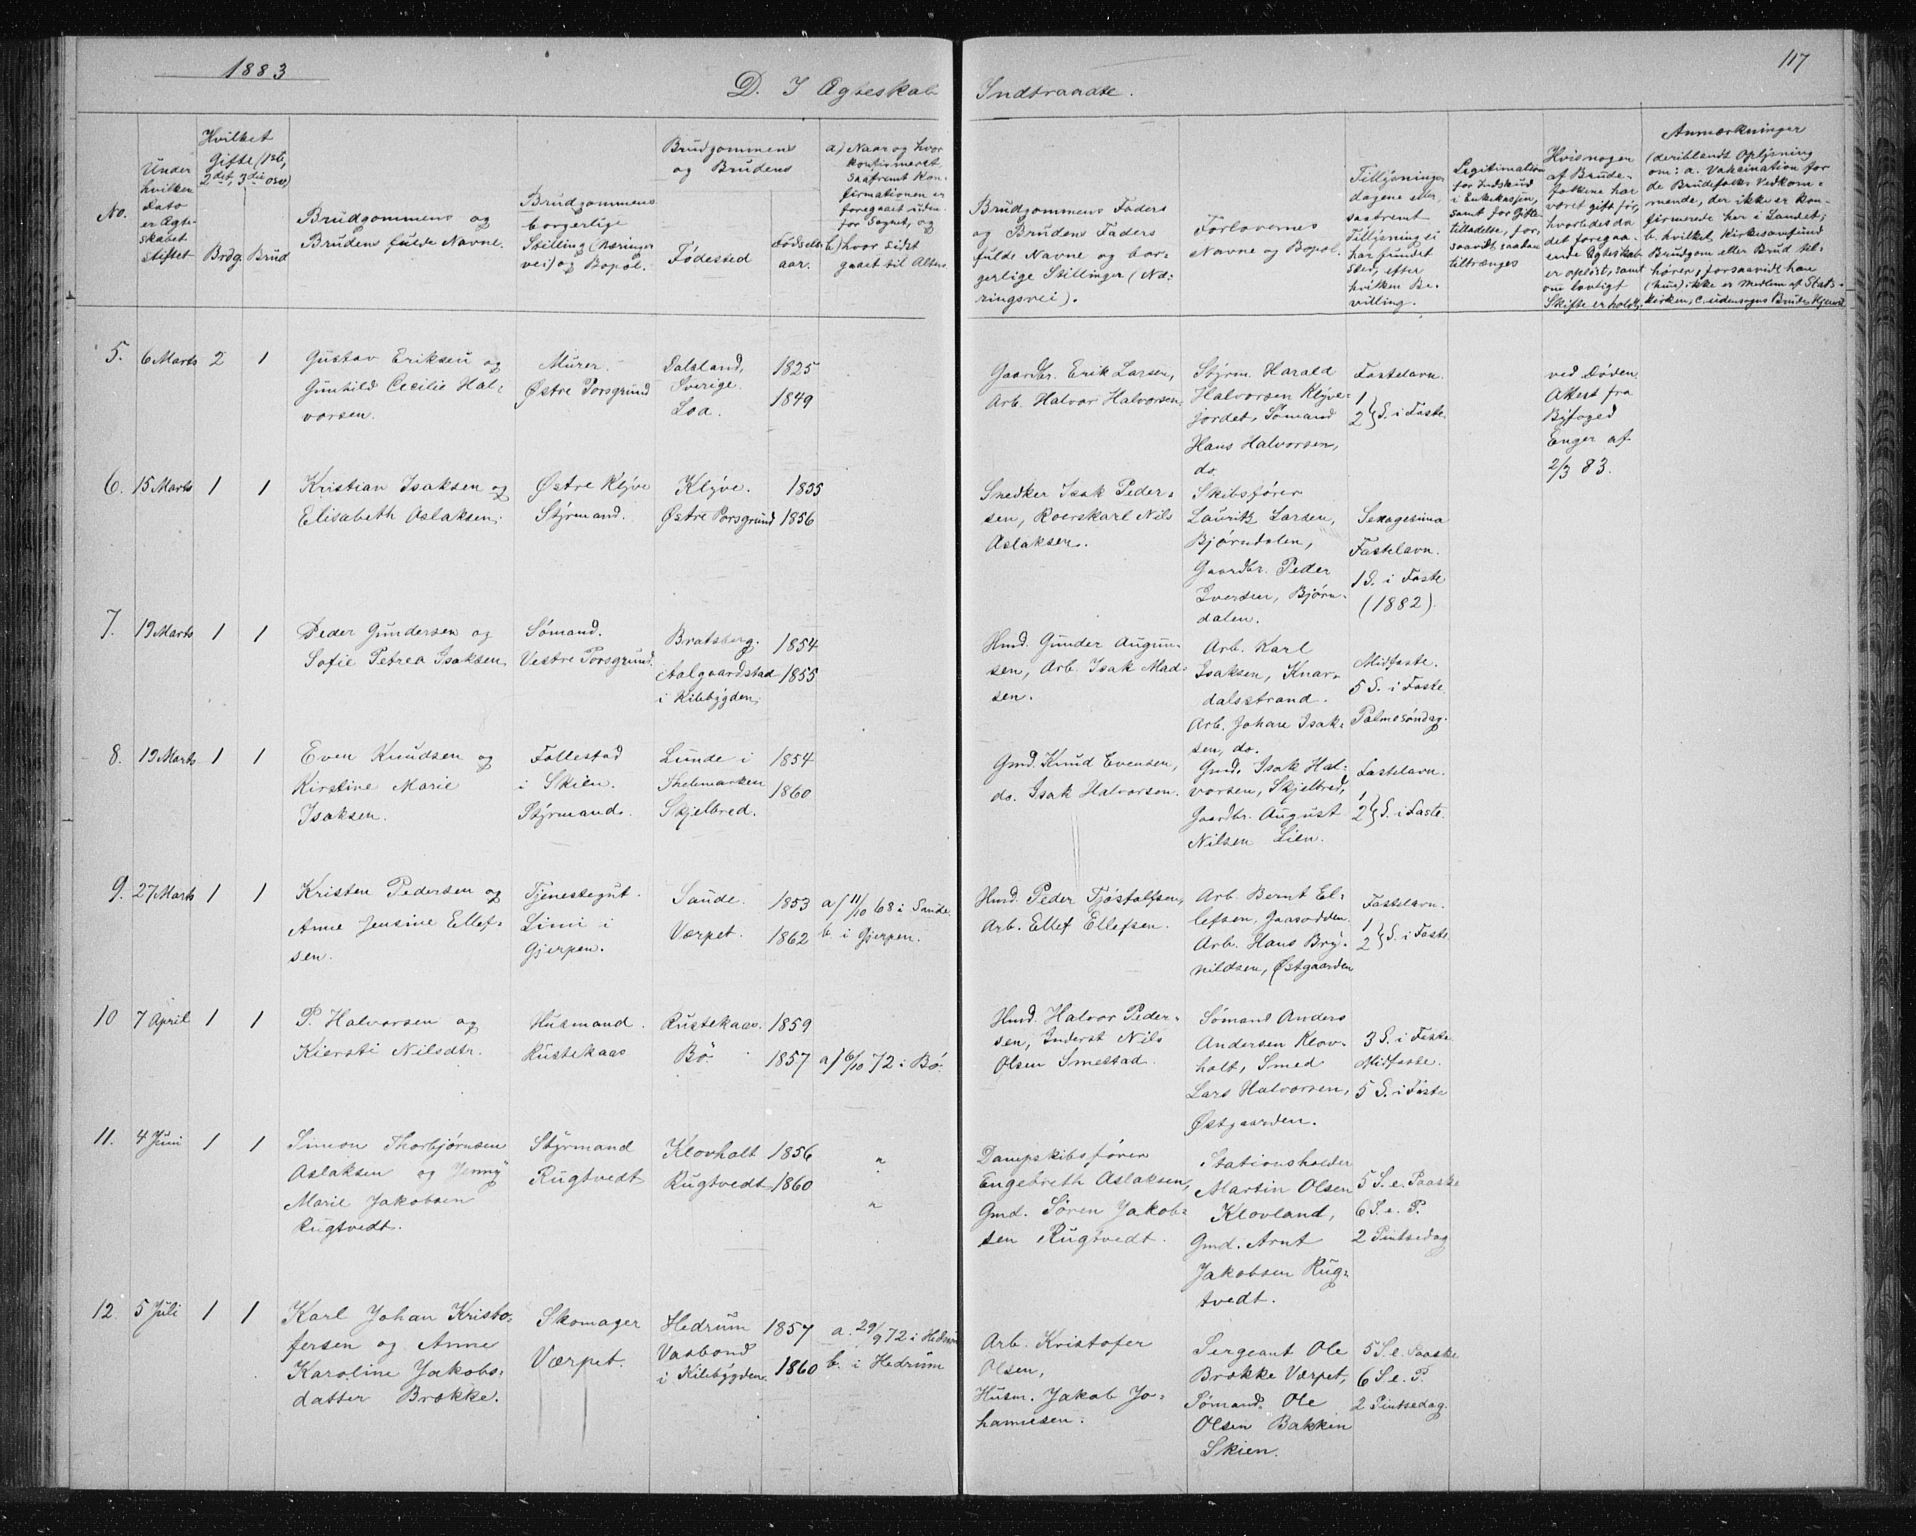 1883
117
D. I Ægteskab Indtraadte.
No.
Under
hvilken
Dato
er Ægte-
skabet
stiftet
Hvilket
Gifte (1ste,
2det, 3die osv)
Brdg. Brud
Brudgommens og
Brudens fulde Navne.
Brudgommens
borgerlige
Stilling (Nærings-
vei) og Bopæl.
Brudgommens
og Brudens
Fødested
Fødsels-
aar.
a) Naar og hvor
konfirmeret,
saafremt Kon-
firmationen er
foregaaet uden-
for Sognet, og
b) hvor sidst
gaaet til Alters
Brudgommens Faders
og Brudens Faders
fulde Navne og bor-
gerlige Stillinger (Næ-
ringsvei).
Forlovernes
Navne og Bopæl.
Tillysnings-
dagene eller,
saafremt
Tillysning ei
har fundet
Sted, efter
hvilken Be-
villing.
Legitimation
for Indskud
i Enkekassen,
samt for Gifte-
tilladelse, for-
saavidt saadan
tiltrænges
Hvis nogen
af Brude-
folkene har
været gift før,
hvorledes da
det foregaa-
ende Ægteskab
er opløst, samt
om lovligt
Skifte er holdt.
Anmærkninger
(deriblandt Oplysning
om: a. Vakcination for
de Brudefolks Vedkom-
mende, der ikke er kon-
firmerede her i Landet;
b. hvilket Kirkesamfund
Brudgom eller Brud til-
hører, forsaavidt han
(hun) ikke er Medlem af Stats-
kirken, c. udensogns Bruds Hjemsted
5. 6 Marts 2 1
Gustav Eriksen og
Gunhild Cecilie Hal-
vorsen.
Murer.
Østre Porsgrund
Dalsland,
Sverige.
Loa.
1825
1849
Gaardbr. Erik Larsen,
Arb. Halvor Halvorsen.
Styrm. Harald
Halvorsen Klyve-
jordet, Sømand
Hans Halvorsen,
do.
Fastelavn.
1
2 } S. i Faste.
ved Døden.
Attest fra
Byfoged
Enger af
2/3 83.
6. 15 Marts 1 1
Kristian Isaksen og
Elisabeth Aslaksen.
Østre Klyve
Styrmand.
Klyve.
Østre Porsgrund
1855
1856
Snedker Isak Peder-
sen, Roerskarl Nils
Aslaksen.
Skibsfører
Lauritz Larsen,
Bjørndalen,
Gaardbr. Peder
Iversen, Bjørn-
dalen.
Sexagesima
Fastelavn.
1 S. i Faste
(1882).
7. 19 Marts 1 1
Peder Gundersen og
Sofie Petrea Isaksen.
Sømand.
Vestre Porsgrund.
Bratsberg.
Aalgaardstad
i Kilebygden.
1854
1855
Hmd. Gunder Augun-
sen, Arb. Isak Mad-
sen.
Arb. Karl
Isaksen, Knar-
dalsstrand.
Arb. Johan Isak-
sen, do.
Midfaste.
5 S. i Faste.
Palmesøndag.
8. 19 Marts 1 1
Even Knudsen og
Kirstine Marie
Isaksen.
Follestad
i Skien.
Styrmand.
Lunde i
Thelemarken
Skjelbred.
1854
1860
Gmd. Knud Evensen,
do. Isak Halvorsen.
Gmd. Isak Hal-
vorsen, Skjelbred,
Gaardbr. August
Nilsen Lien.
Fastelavn.
1
2 } S. i Faste.
9. 27 Marts 1 1
Kristen Pedersen og
Anne Jensine Ellef-
sen.
Tjenestegut.
Limi i
Gjerpen.
Saude.
Værpet.
1853
1862
a) 11/10 68 i Saude.
b. i Gjerpen.
Hmd. Peder Tjøstolfsen,
Arb. Ellef Ellefsen.
Arb. Bernt El-
lefsen, Gaasodden.
Arb. Hans Bry-
nildsen, Østgaarden
Fastelavn.
1
2 } S. i Faste
10 7 April 1 1
P. Halvorsen og
Kiersti Nilsdtr.
Husmand.
Rustekaas
Rustekaas.
Bø.
1859
1857
a) 6/10 72 i Bø.
Hmd. Halvor Peder-
sen, Inderst Nils
Olsen Smestad.
Sømand Anders
Andersen Klov-
holt, Smed
Lars Halvorsen,
Østgaarden.
3 S. i Faste
Midfaste.
5 S. i Faste
11. 4 Juni 1 1
Simon Thorbjørnsen
Aslaksen og Jenny
Marie Jakobsen
Rugtvedt.
Styrmand
Rugtvedt
Klovholt
Rugtvedt
1856
1860
"
"
Dampskibsfører
Engebreth Aslaksen,
Gmd. Søren Jakob-
sen Rugtvedt.
Stationsholder
Martin Olsen
Klovland,
Gmd. Arnt
Jakobsen Rug-
tvedt.
5 S. e. Paaske
6 S. e. P.
2 Pintsedag
12. 5 Juli 1 1
Karl Johan Kristo-
fersen og Anne
Karoline Jakobs-
datter Brække.
Skomager
Værpet.
Hedrum
Vasbond
i Kilebygden.
1857
1860
a. 29/9 72 i Hedrum
b. i Hedrum
Arb. Kristofer
Olsen,
Husm. Jakob Jo-
hannesen.
Sergeant Ole
Brække Værpet,
Sømand Ole
Olsen Bakken
Skien.
5 S. e. Paaske
6 S. e. P.
2 Pintsedag.